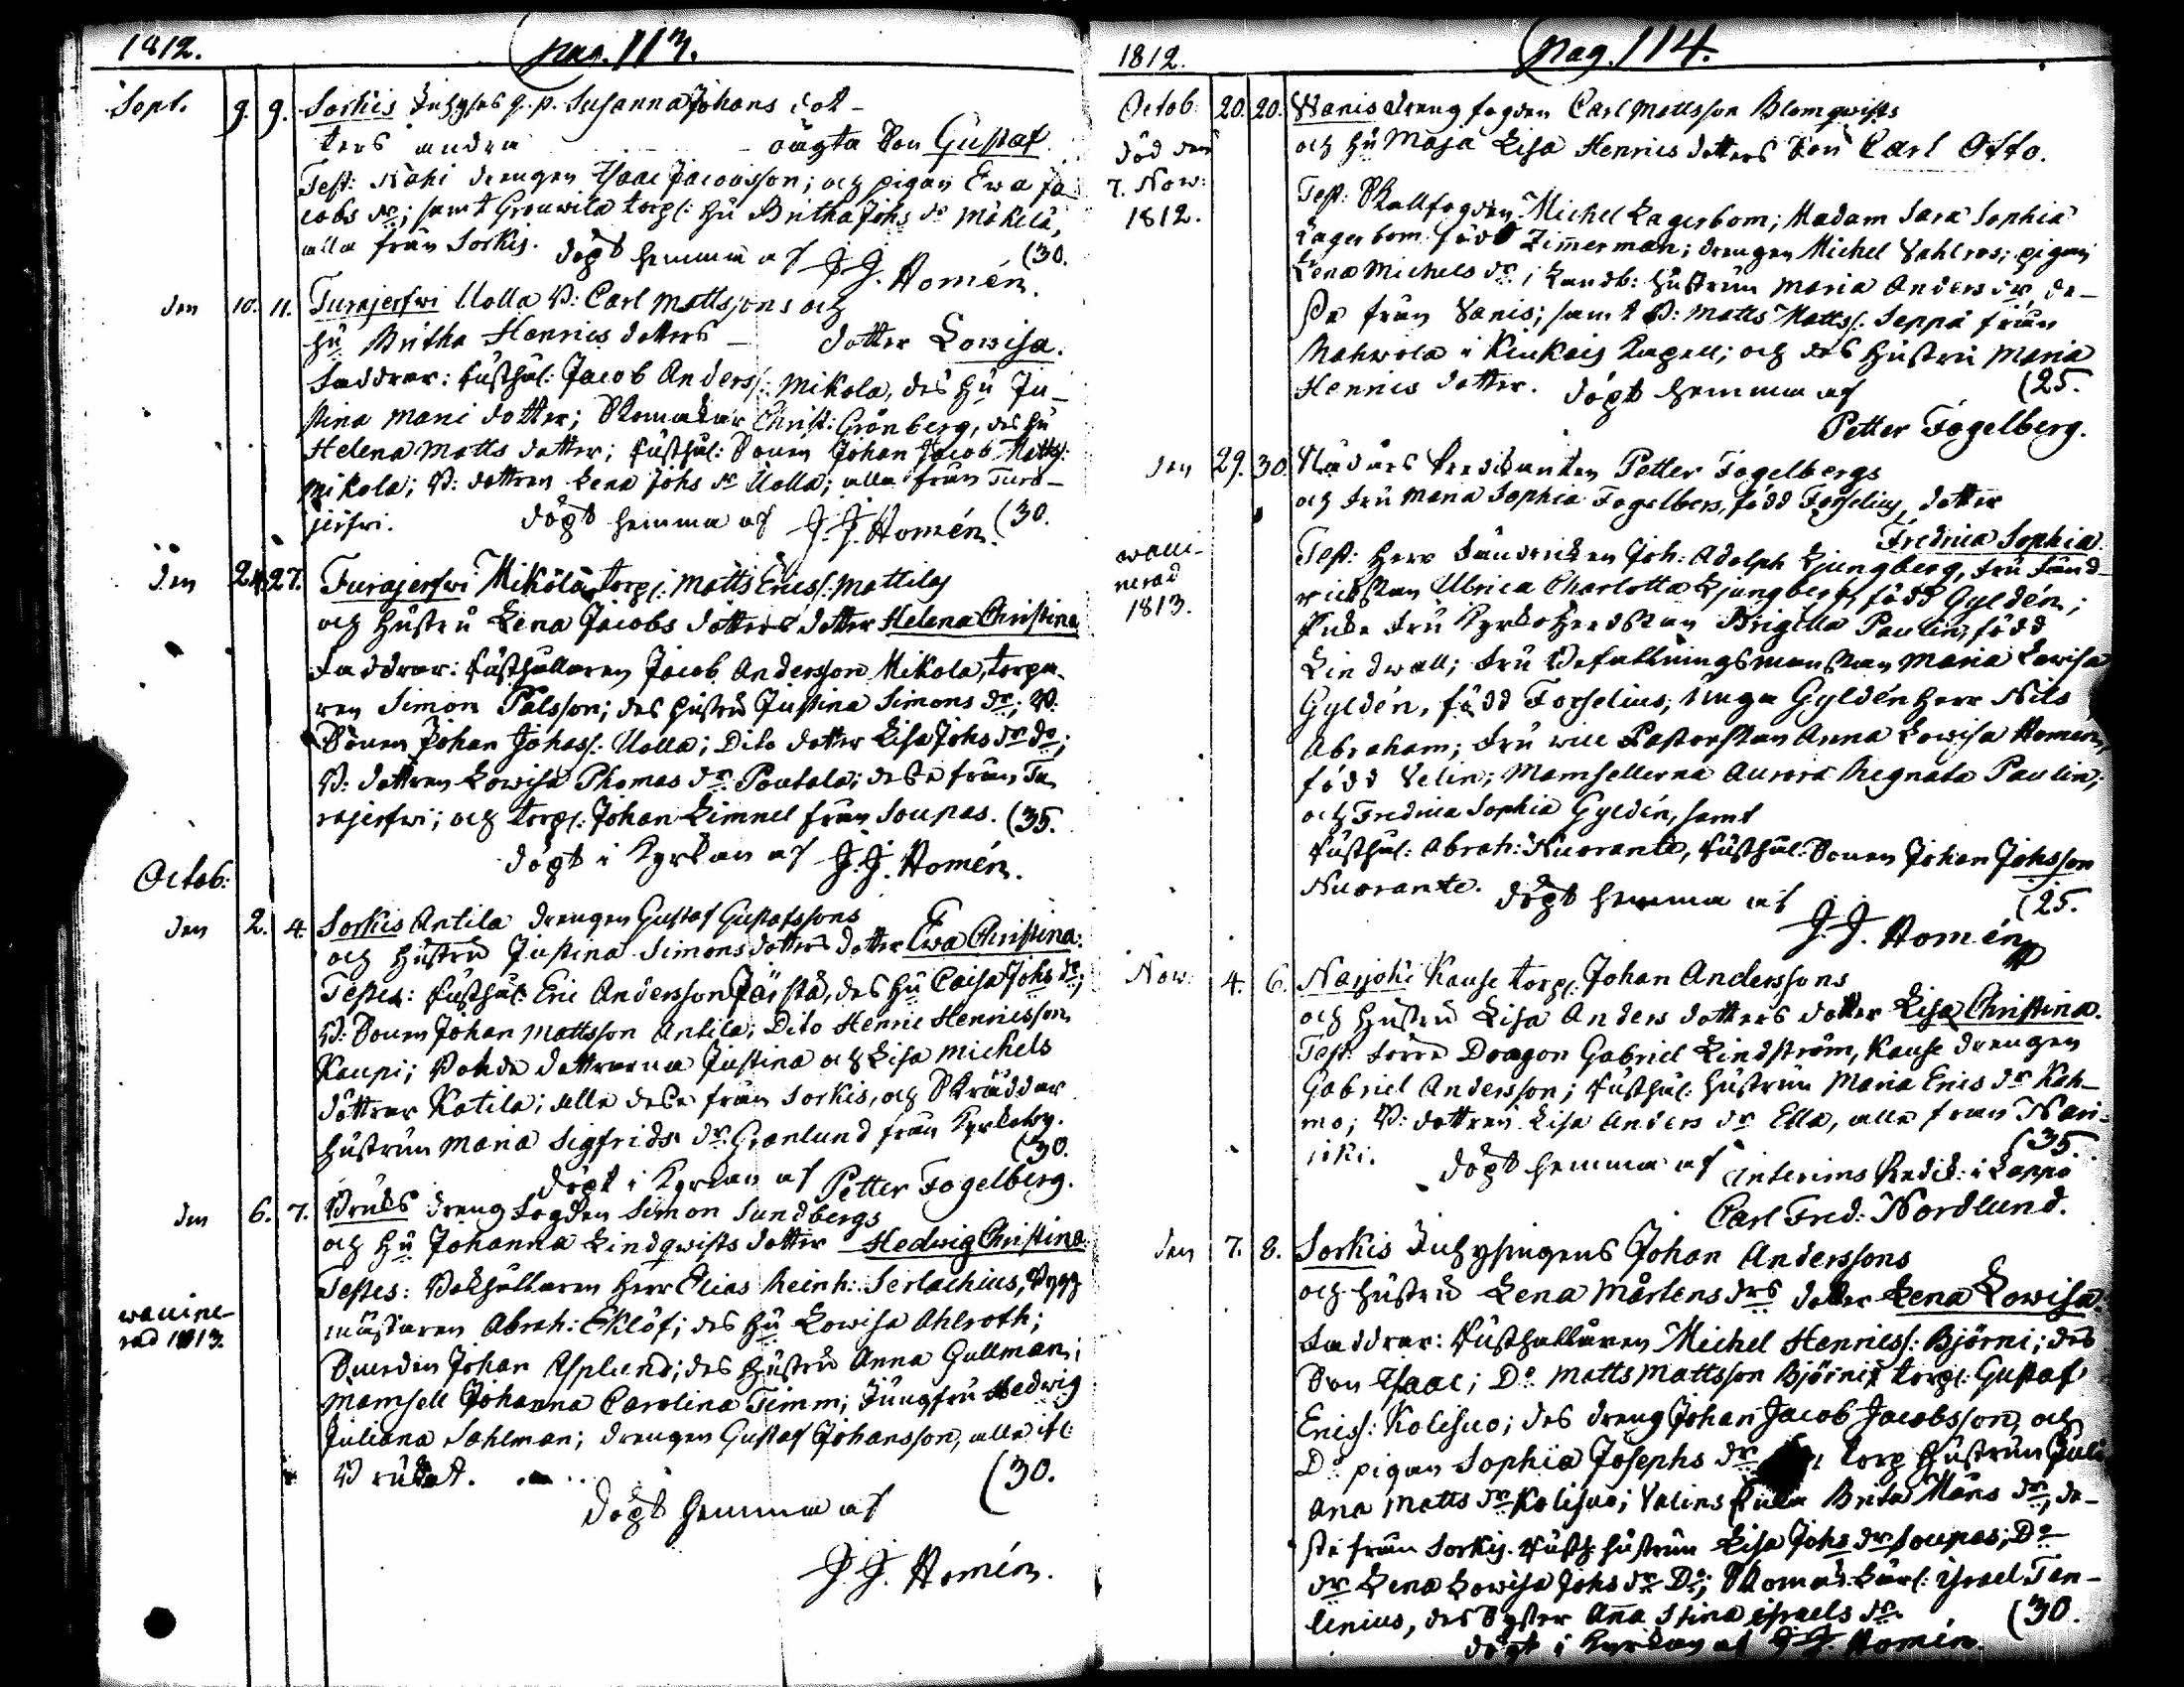 1812.
pag. 113.
Sept. 9. 9. Sorkis Inhyses q. p. Susanna Johans dot-
ters andra oägta Son Gustaf
Test: Nahi drengen Isaac Jacobsson; och pigan Ewa Ja
cobs dr; samt torp: hu Britha Johs dr Mäkelä,
alla från Sorkis. döpt hemma af J. J. Homén. (30.
den 10. 11. Turajerfwi Uolla B: Carl Mattssons och
hu Britha Henrics dotters dotter Lowisa.
Faddrar: Rusthål: Jacob Anders: Mikola, des hu Ju-
stina Mari dotter; Skomakar Christ: Grönberg, des hu
Helena Matts dotter; Rusthål: Sonen Johan Jacob Matts:
Mikola; B: dottren Lena Johs dr Uolla; alla från Tura-
jerfwi. döpt hemma af J. J. Homén. (30.
den 24. 27. Turajerfwi Mikola torp: Matts Erics: Mattilas
och hustru Lena Jacobs dotters dotter Helena Christina
Faddrar: Rusthållaren Jacob Andersson Mikola, torpa-
ren Simon Pålsson; des hustru Justina Simons dr; B:
Sonen Johan Johass: Uolla; Dito dotter Lisa Johs dr do;
B: dottren Lowisa Thomas dr Poutala; desse från Tu
rajerfwi; och torp: Johan Limnel från Soupas. (35.
döpt i Kyrkan af J. J. Homén.
Octob:
den 2. 4. Sorkis Antila drengen Gustaf Gustafssons
och hustru Justina Simonsdotters dotter Ewa Christina.
Testes: Rusthål: Eric Andersson Järstä, des hu Caisa Johs dr;
B: Sonen Johan Mattsson Antila; Dito Henric Henricsson
Kaupi; Bonde dottrarna Justina och Lisa Michels
döttrar Katila; alla desse från Sorkis, och Skräddar
hustrun Maria Sigfrids dr Grönlund från Kyrkoby.
(30.
döpt i Kyrkan af Petter Fogelberg.
den 6. 7. Bruks dreng Fogden Simon Sundbergs
och hu Johanna Lindqwists dotter Hedwig Christina.
Testes: Bokhållaren Herr Elias Reinh: Serlachius, Bygg
wacine-
rad 1813.
mästaren Abrah: Eklöf; des hu Lowisa Ahlroth;
Smeden Johan Asplund; des hustru Anna Gullman;
Mamsell Johanna Carolina Timm; Jungfru Hedwig
Juliana Sahlman; drengen Gustaf Johansson, alla if:
Bruket. (30.
döpt hemma af
J. J. Homén.
1812.
pag. 114.
Octob: 20. 20. Wanis dreng fogden Carl Mattsson Blomqwists
död den
och hu Maja Lisa Henrics dotters Son Carl Otto.
7. Now:
1812.
Test: Skallfogden Michel Lagerbom; Madam Sara Sophia
Lagerbom född Zimmerman; drengen Michel Wahlros; pigan
Lena Michels dr; Landb: hustrun Maria Anders dr, de-
ße från Wanis; samt B: Matts Matts: Seppä från
Mahwola i Kiukais Kapell; och des hustru Maria
Henrics dotter. döpt hemma af (25.
Petter Fogelberg.
den 29. 30. Nådårs Predikanten Petter Fogelbergs
och Fru Maria Sophia Fogelberg, född Forselius, dotter
Fredrica Sophia.
wacci-
nerad
1813.
Test: Herr Fändricken Joh: Adolph Ljungberg, Fru Fänd-
rickskan Ulrica Charlotta Ljungberg, född Gyldén;
Enke Fru Kyrkoherdskan Brigitta Paulin, född
Lindwall; Fru Befallningsmanskan Maria Lowisa
Gyldén, född Forselius; Unga Gyldén Herr Nils
Abraham; Fru wice Pastorskan Anna Lowisa Homén,
född Velin; Mamsellerna Aurora Regnata Paulin;
och Fredrica Sophia Gyldén, samt
Rusthål: Abrah: Nuorante, Rusthål: Sonen Johan Johsson
Nuorante. döpt hemma af (25.
J. J. Homén
Now: 4. 6. Narjoki Kause torp: Johan Anderssons
och hustru Lisa Anders dotters dotter Lisa Christina.
Test: Förre Dragon Gabriel Lindström, Kause drengen
Gabriel Andersson; Rusthål: hustrun Maria Erics dr Kah-
mo; B: dottren Lisa Anders dr Ella, alla från Nari-
joki. (35.
döpt hemma af Interims Predik: i Lappo
Carl Fred: Nordlund.
den 7. 8. Sorkis Inhysingens Johan Anderssons
och hustru Lena Mårtens drs dotter Lena Lowisa.
Faddrar: Rusthållaren Michel Henrics: Björni; des
Son Isaac; Do Matts Mattsson Björni; torp: Gustaf
Erics: Kolisuo; des dreng Johan Jacob Jacobsson, och
Do pigan Sophia Josephs dr torp hustrun Juli
ana Matts dr Kolisuo; Brita Måns dr, de-
ße från Sorkis. Rusth hustrun Lisa Johs dr Soupas; Do
dr Lena Lowisa Johs dr Do; Israel Ten-
lenius, des Syster Anna Stina Israels dr. (30.
döpt i Kyrkan af J J Homén.